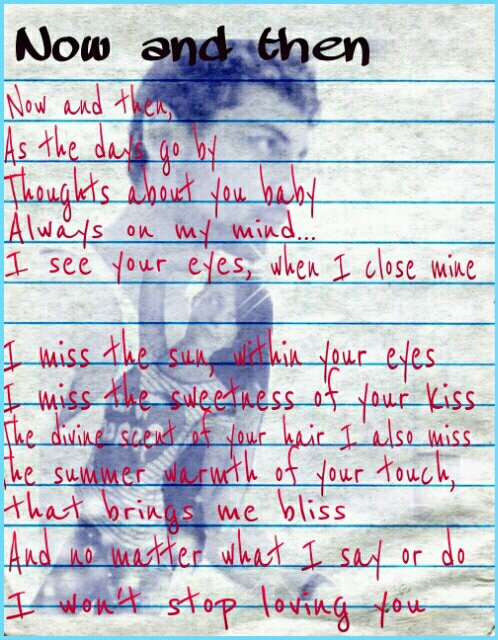 Now and then
Now and then,
As the days go by
Thoughts about you baby
Always on my mind...
I see your eyes, when I close mine
I miss the sun, within your eyes
I miss the sweetness of your kiss
The divine scent of your hair I also miss
The summer warmth of your touch,
that brings me bliss
And no matter what I say or do
I won't stop loving you